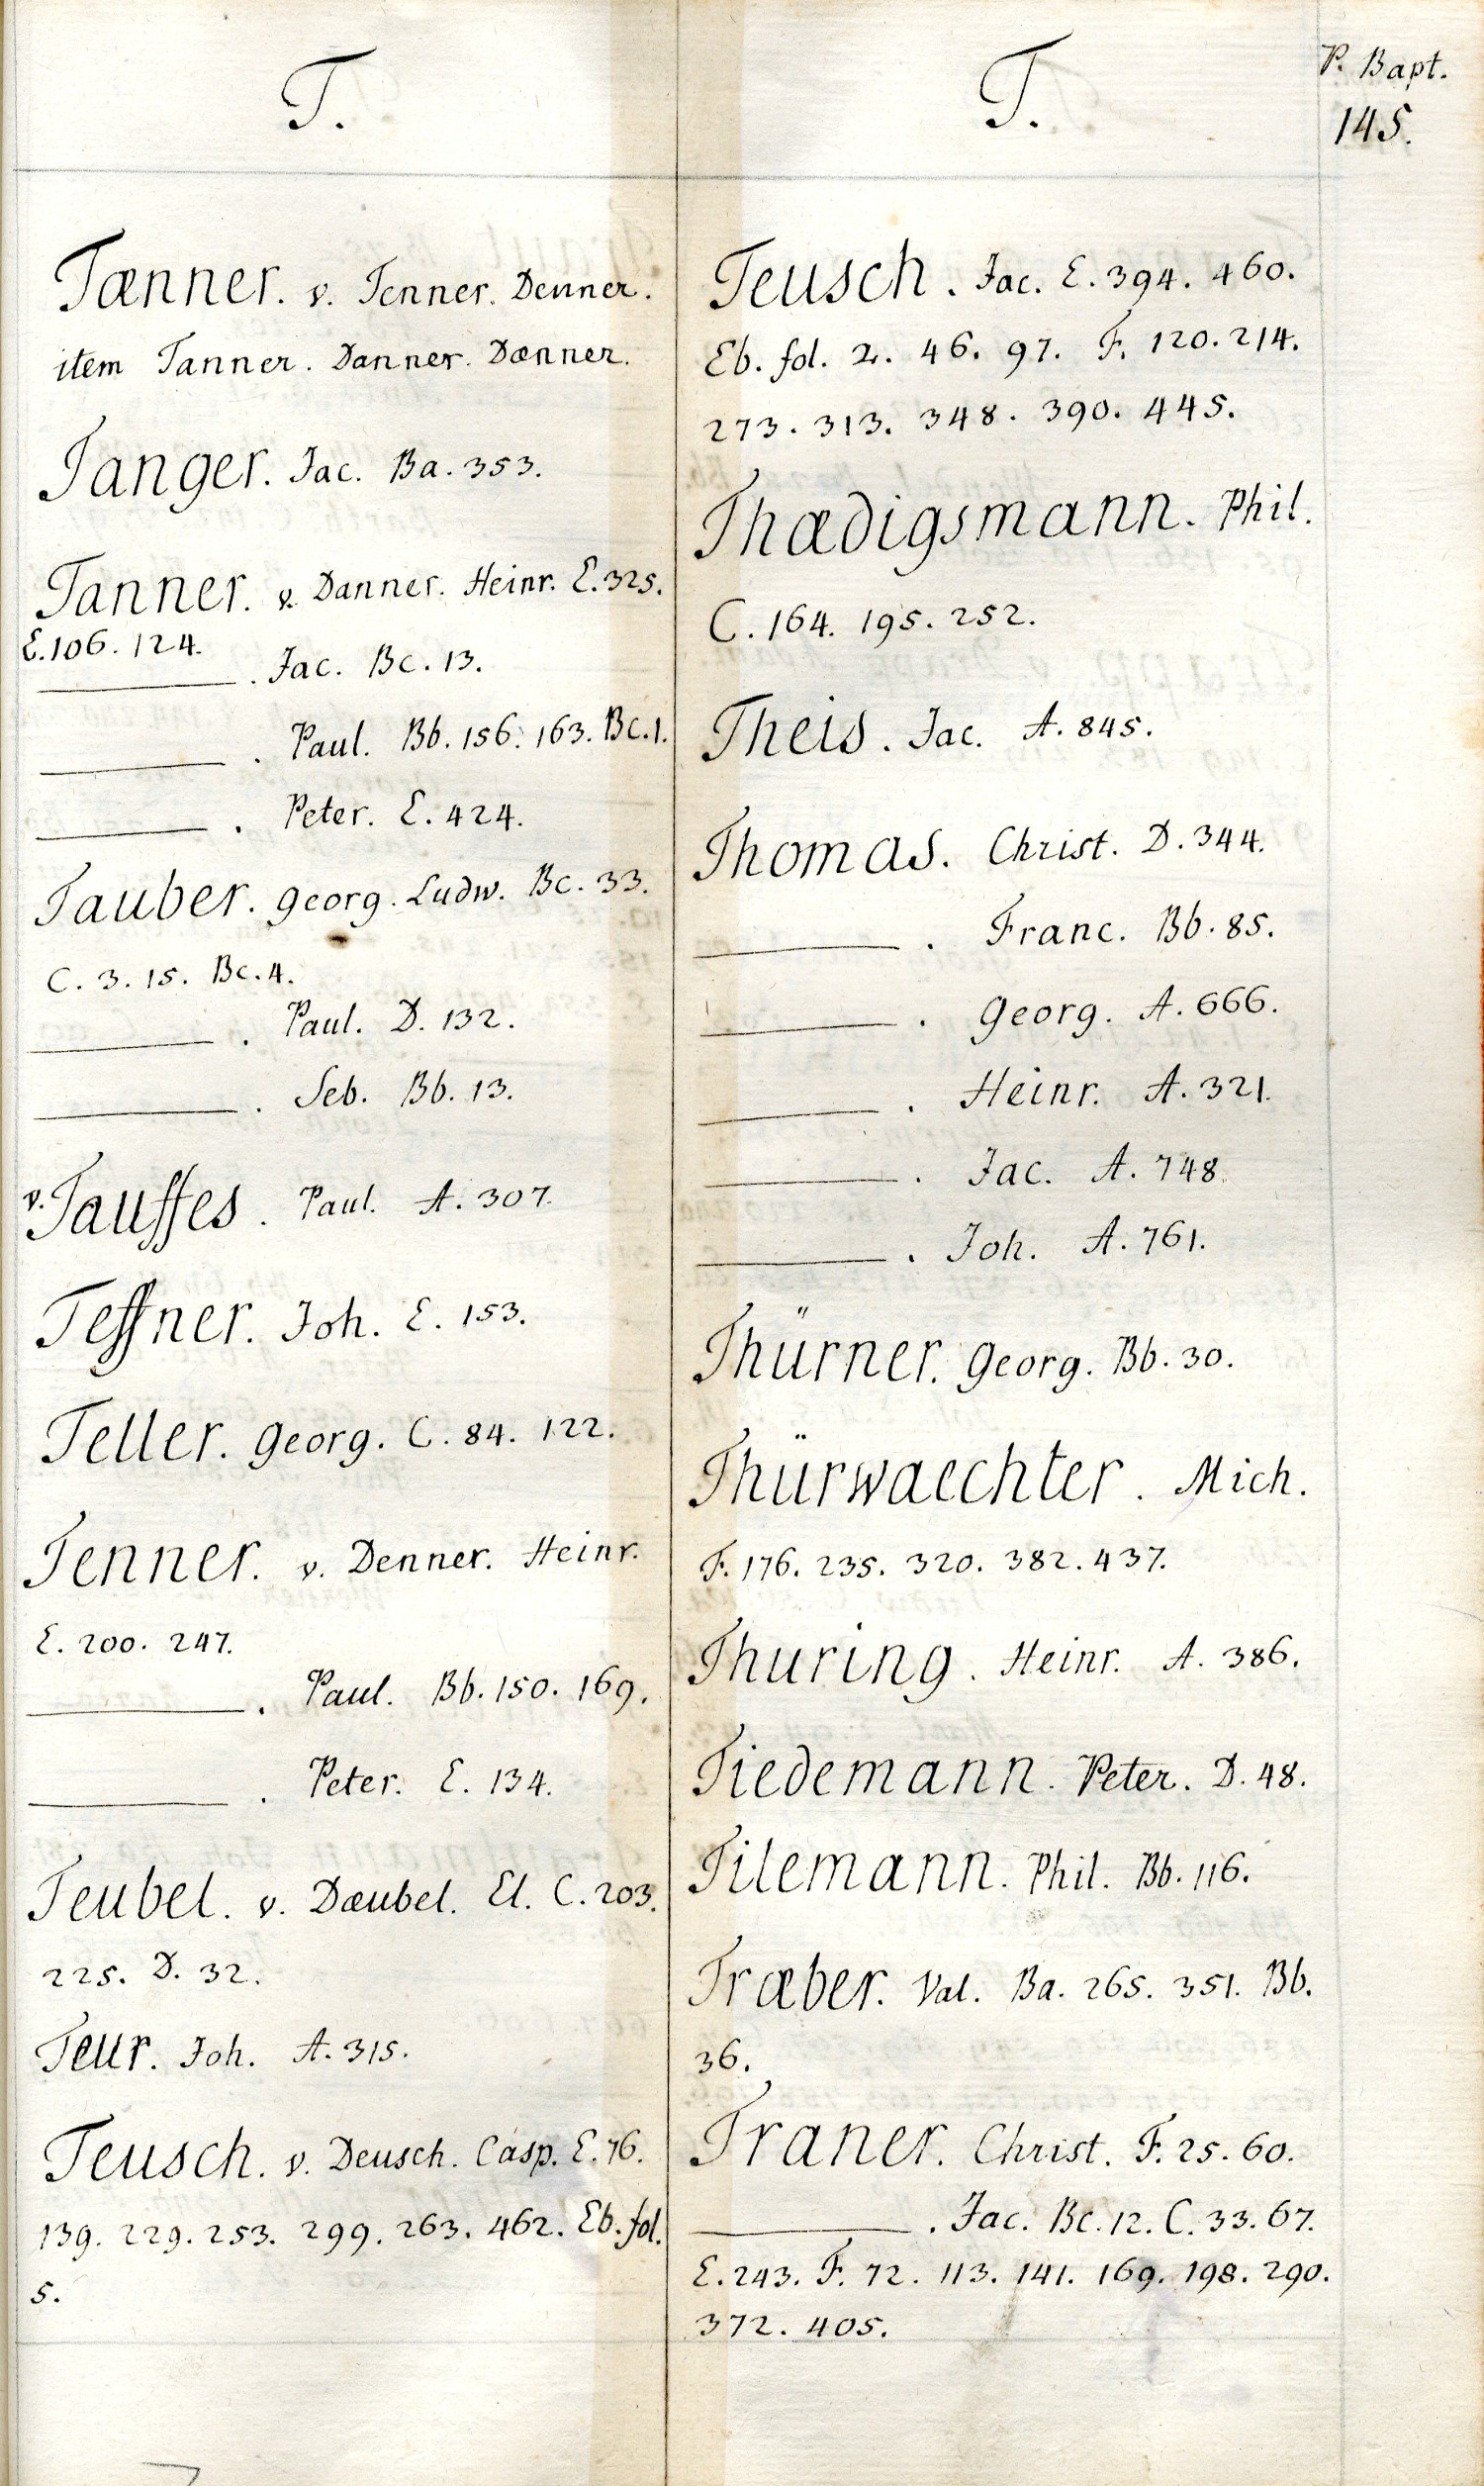 T.
Tænner. v. Tenner. Denner.
item Tanner. Danner. Dænner.
Tanger. Jac. Ba. 353.
Tanner. v. Danner. Heinr. E. 325.
E. 106. 124.
———. Jac. Bc. 13.
———. Paul. Bb. 156. 163. Bc. 1.
———. Peter. E. 424.
Tauber. Georg. Ludw. Bc. 33.
C. 3. 15. Bc. 4.
———. Paul. D. 132.
———. Seb. Bb. 13.
v. Tauffes. Paul. A. 307.
Teffner. Joh. E. 153.
Teller. Georg. C. 84. 122.
Tenner. v. Denner. Heinr.
E. 200. 247.
———. Paul. Bb. 150. 169.
———. Peter. E. 134.
Teubel. v. Dæubel. El. C. 203.
225. D. 32.
Teur. Joh. A. 315.
Teusch. v. Deusch. Casp. E. 76.
139. 229. 253. 299. 263. 462. Eb. fol.
5.
T.
P. Bapt.
145.
Teusch. Jac. E. 394. 460.
Eb. fol. 2. 46. 97. F. 120. 214.
273. 313. 348. 390. 445.
Thædigsmann. Phil.
C. 164. 195. 252.
Theis. Jac. A. 845.
Thomas. Christ. D. 344.
———. Franc. Bb. 85.
———. Georg. A. 666.
———. Heinr. A. 321.
———. Jac. A. 748.
———. Joh. A. 761.
Thürner. Georg. Bb. 30.
Thürwaechter. Mich.
F. 176. 235. 320. 382. 437.
Thuring. Heinr. A. 386.
Tiedemann. Peter. D. 48.
Tilemann. Phil. Bb. 116.
Træber. Val. Ba. 265. 351. Bb.
36.
Traner. Christ. F. 25. 60.
———. Jac. Bc. 12. C. 33. 67.
E. 243. F. 72. 113. 141. 169. 198. 290.
372. 405.